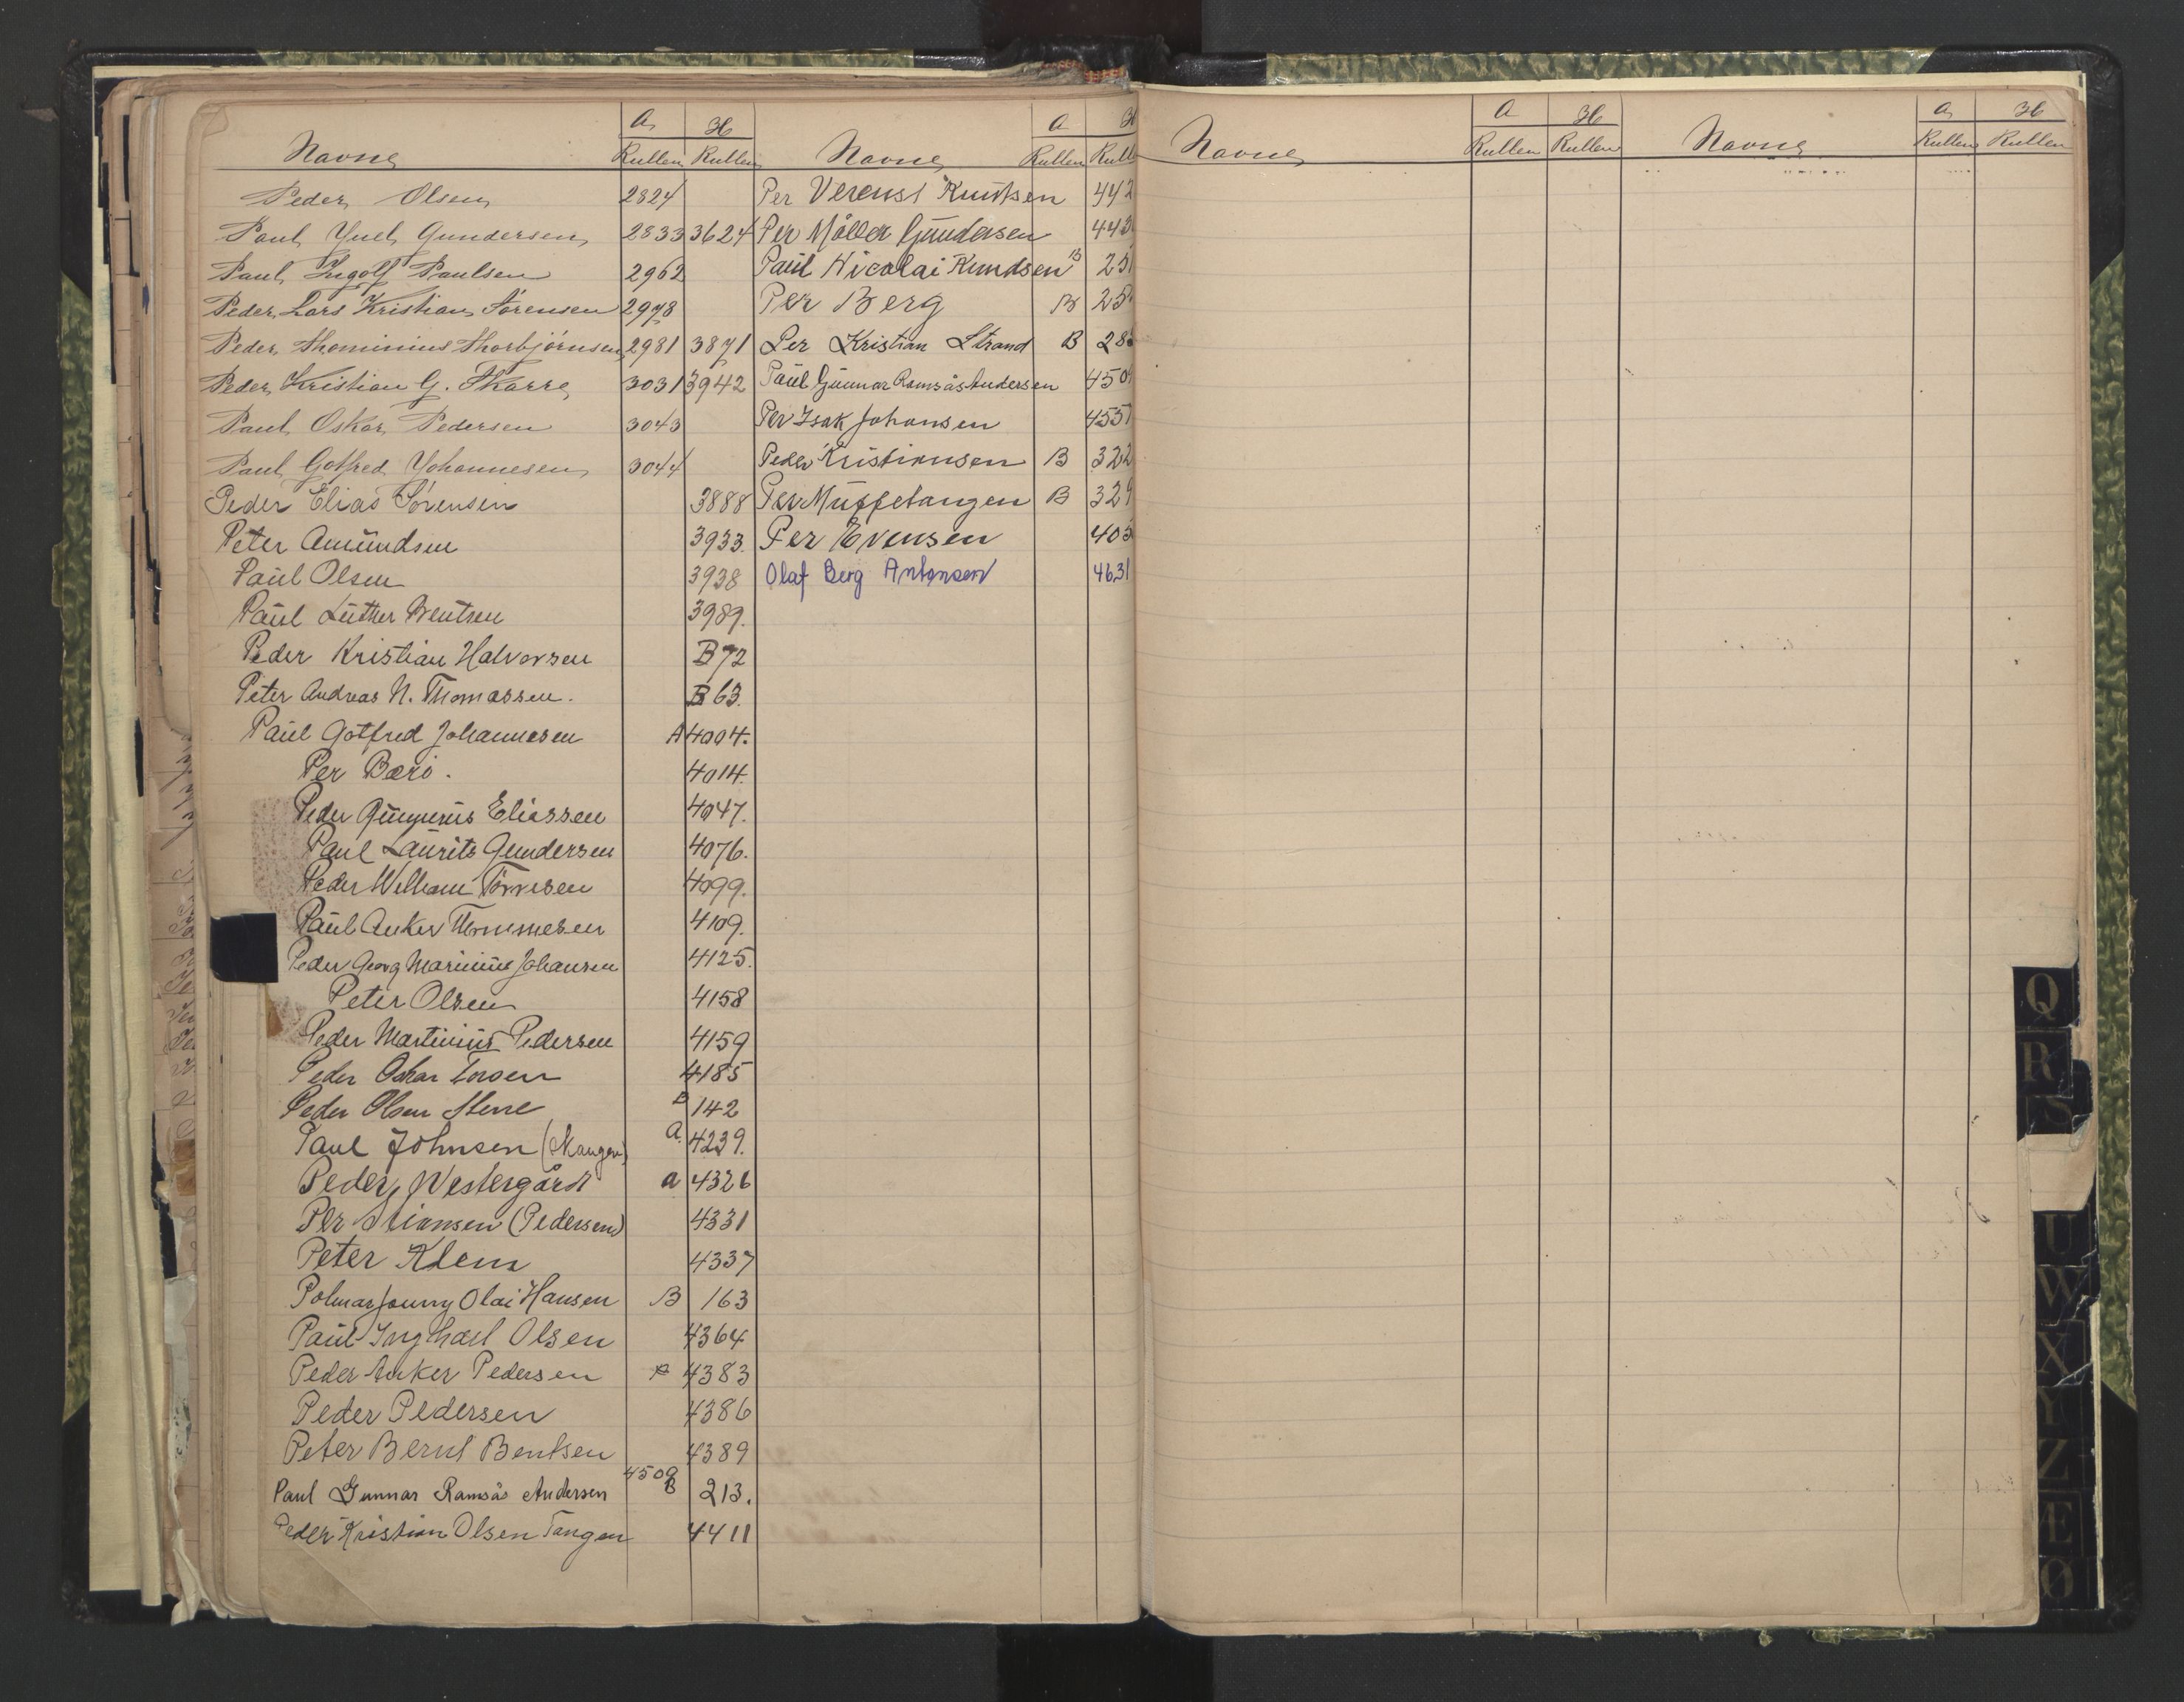 Navne A Rullen H Rullen
Peder Olsen 2824
Paul Juel Gundersen 2833 3624
Paul Ingolf Paulsen 2962
Peder Lars Kristian Sørensen 2978
Peder Thominius Thorbjørnsen 2981 3871
Peder Kristian G. Skarre 3031 3942
Paul Oskar Pedersen 3043
Paul Gotfred Johannesen 3044
Peder Elias Sørensen 3888
Peter Amundsen 3933.
Paul Olsen 3938
Paul Luther Bentsen 3989.
Peder Kristian Halvorsen B 72
Peter Andreas N. Thomassen. B 63.
Paul Gotfred Johannesen A 4004.
Per Bærø. 4014.
Peder Gunnerius Eliassen 4047.
Paul Laurits Gundersen 4076.
Peder William Tørresen 4099.
Paul Anker Thommesen 4109.
Peder Georg Marinius Johansen 4125.
Peter Olsen 4158
Peder Martinius Pedersen 4159
Peder Oskar 4185
Peder Olsen B 142
Paul Johnsen a. 4239.
Peder Westergårdt a 4326
Per Stiansen (Pedersen) 4331
Peter Klem 4337
Polmar Olai Hansen B 163
Paul Olsen 4364
Peder Anker Pedersen 4383
Peder Pedersen 4386
Peter Bernt Bentsen 4389
Paul Gunnar Ramsås Andersen 4509 B 213.
Peder Kristian Olsen Tangen 4411
Navne A Rullen
Per Knutsen 442
Per Møller Gundersen 443
Paul Nicolai Knudsen B 23
Per Berg B 25
Per Kristian Strand B 28
Paul Gunnar Ramsås Andersen 450
Per Isak Johansen 455
Peder Kristiansen B 322
Per Muffetangen B 329
Per Evensen 405
Olaf Berg Antonsen 4631
Navne A Rullen H Rullen
Navne A Rullen H Rullen
Q
R
S
U
W
X
Y
Z
Æ
Ø